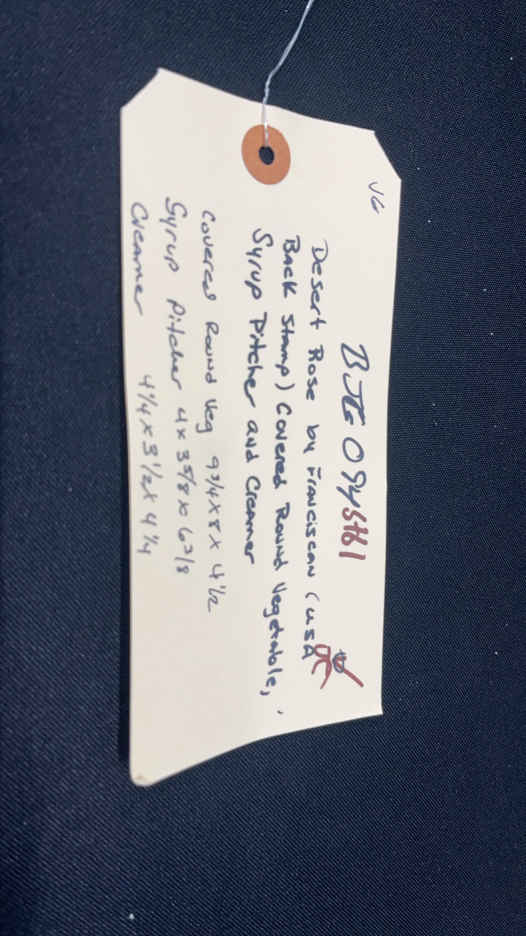 VG
BJG094
Desert Rose by Franciscan (USA
Back Stamp) Covered Round Vegetable,
Syrup Pitcher and Creamer
Covered Round Veg 9 3/4 x 8 x 4 1/2
Syrup Pitcher 4 x 3 5/8 x 6 2/8
Creamer 4 1/4 x 3 1/2 x 4 1/4